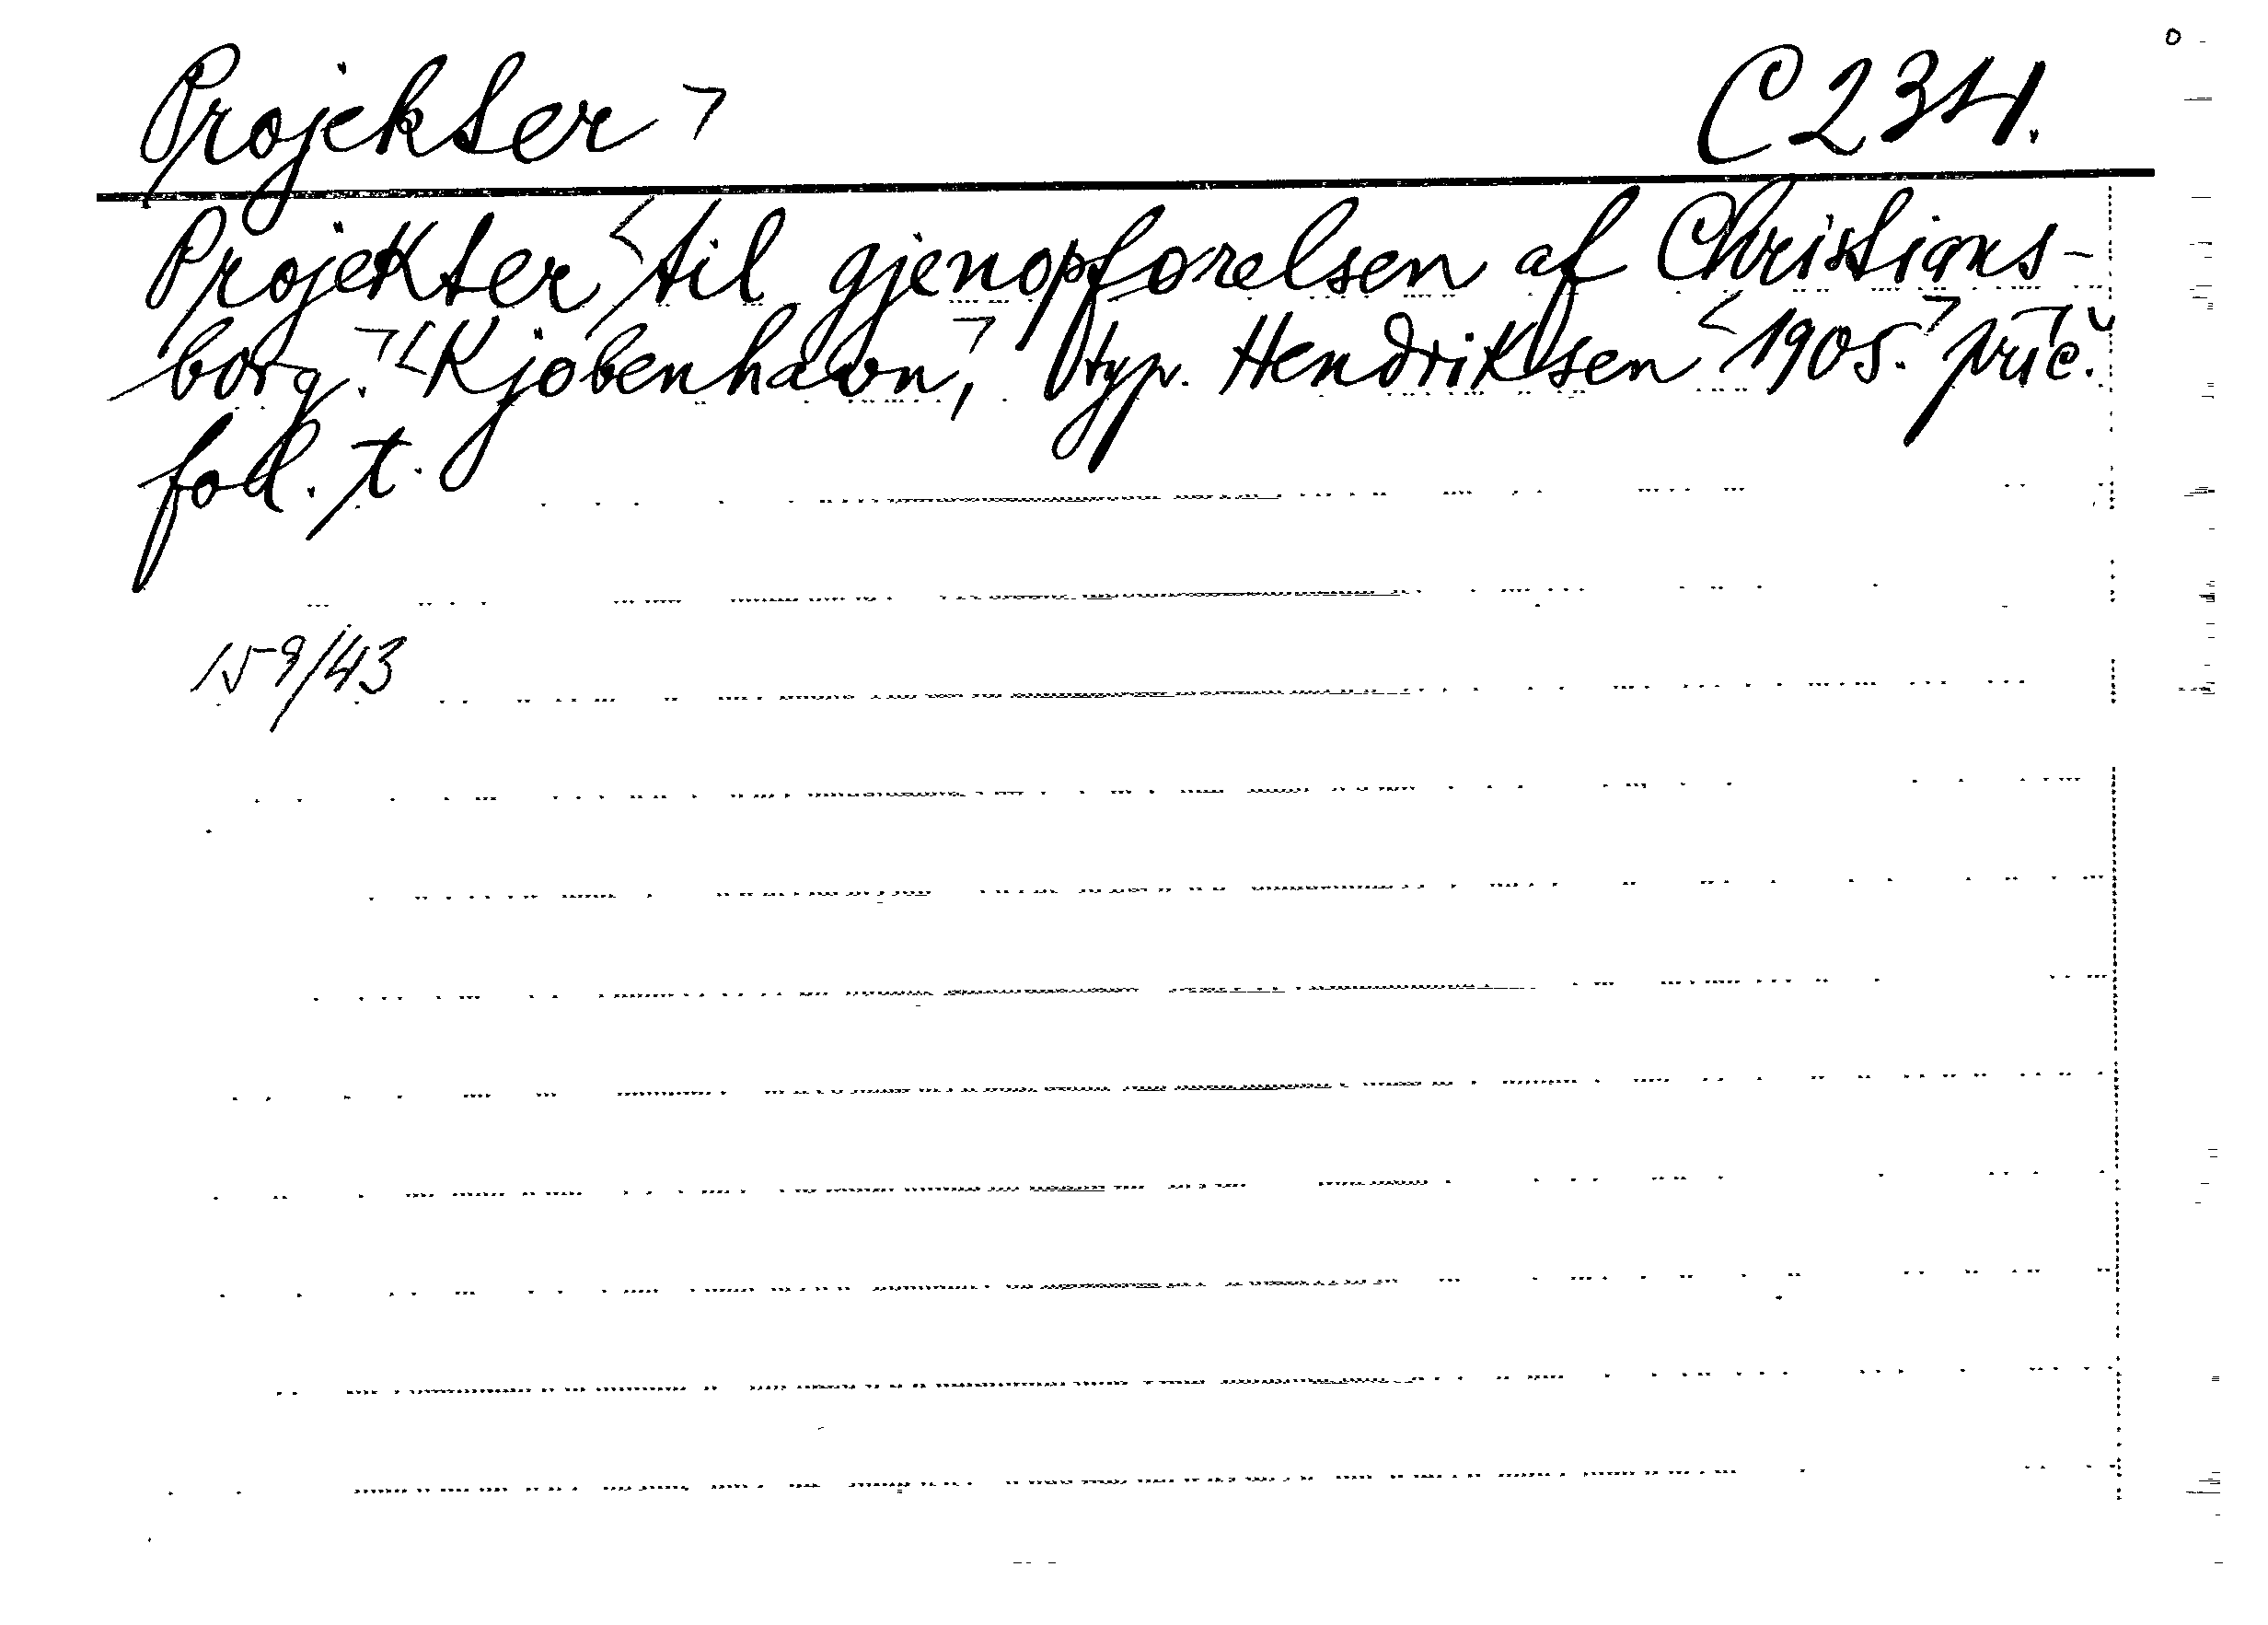 Projekter C 234.
Projekter til gjenopførelsen af Christians-
borg. Kjøbenhavn, typ. Hendriksen 1905. příč.
fol. t.
159/43